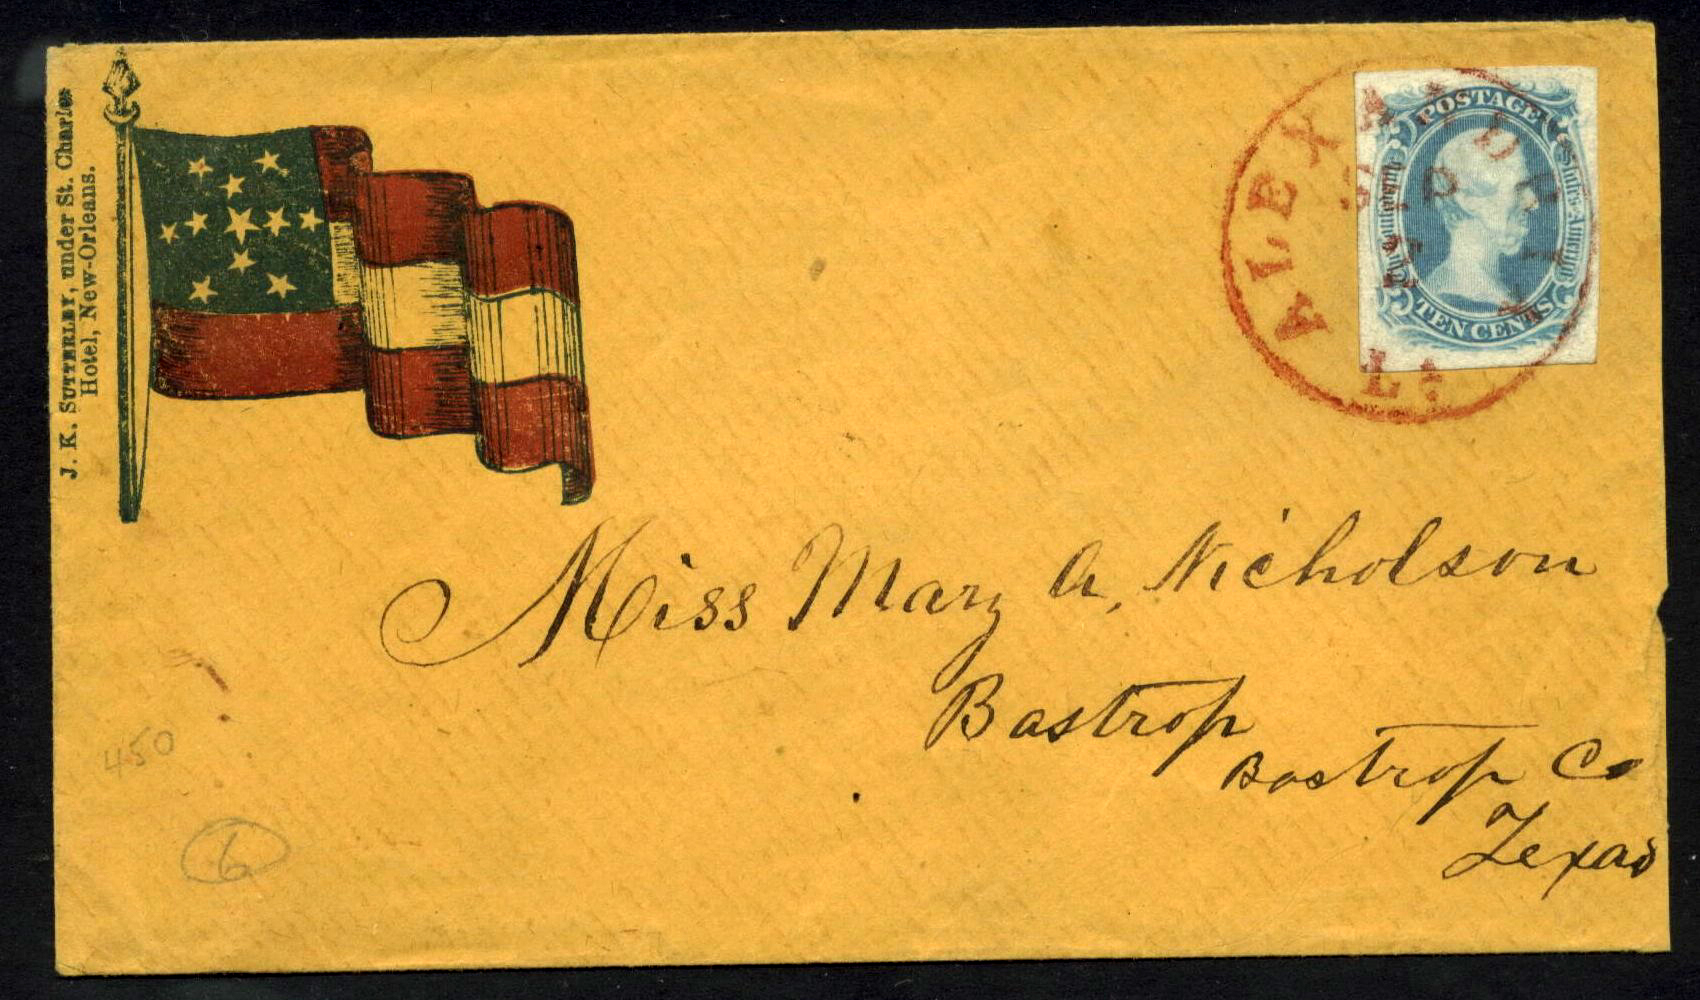 J. K. SUTTERLEY, under St. Charles
Hotel, New-Orleans.
ALEXANDRIA
SEP
La
POSTAGE
The Confederate States of America
TEN CENTS
Miss Mary A. Nicholson
Bastrop
Bastrop Co
Texas
450
6